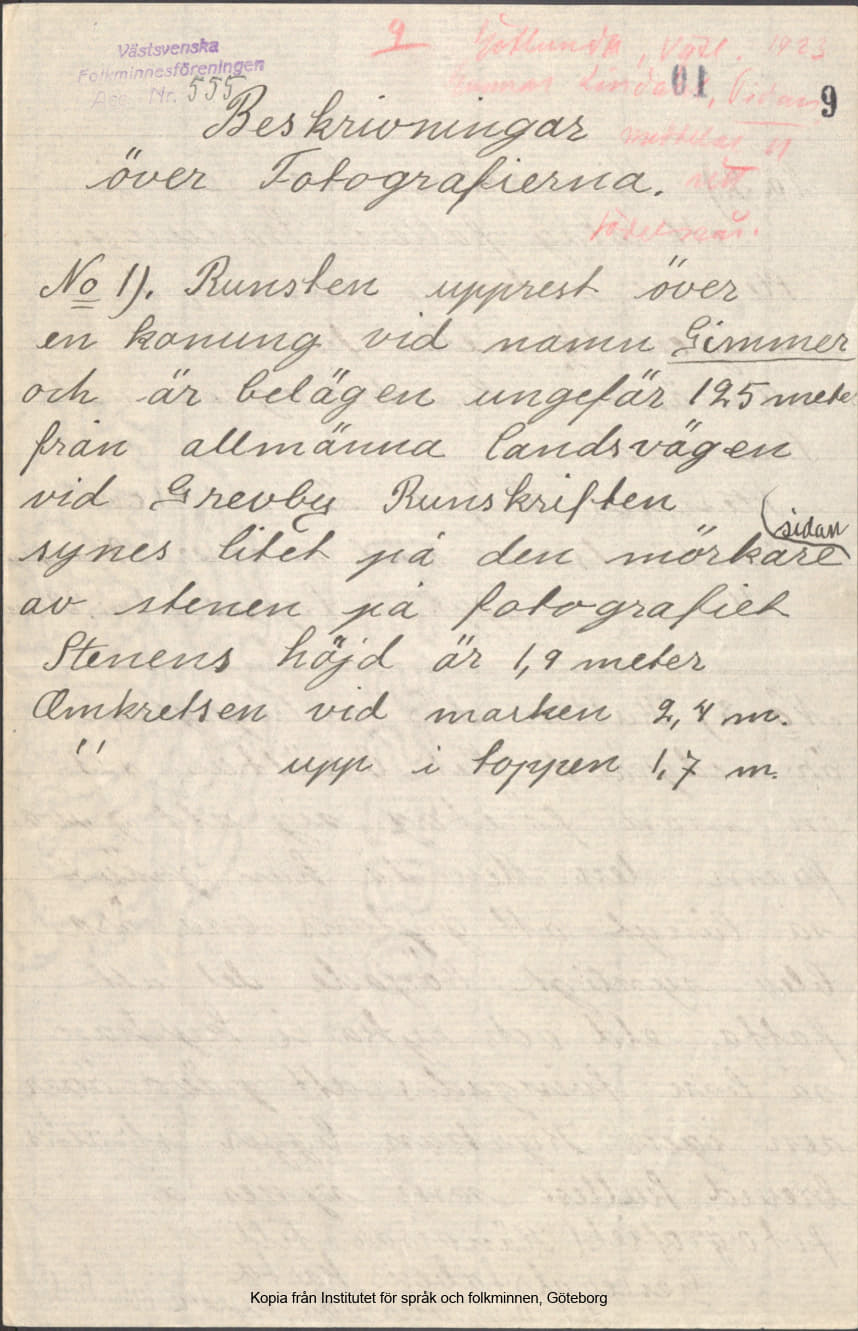 Västsvenska
Folkminnesföreningen
Acc. Nr. 555
9 Götlunda, Vgtl. 1923
Gunnar Lindahl, Vidan,
01
9
meddelar
sett
Beskrivningar
över Fotografierna.
No 1). Runsten upprest över
en konung vid namn Gimmer
och är belägen ungefär 125 meter
från allmänna landsvägen
vid Grevby Runskriften
synes litet på den mörkare (sidan
av stenen på fotografiet
Stenens höjd är 1,9 meter
Omkretsen vid marken 2,4 m.
" upp i toppen 1,7 m.
Kopia från Institutet för språk och folkminnen, Göteborg